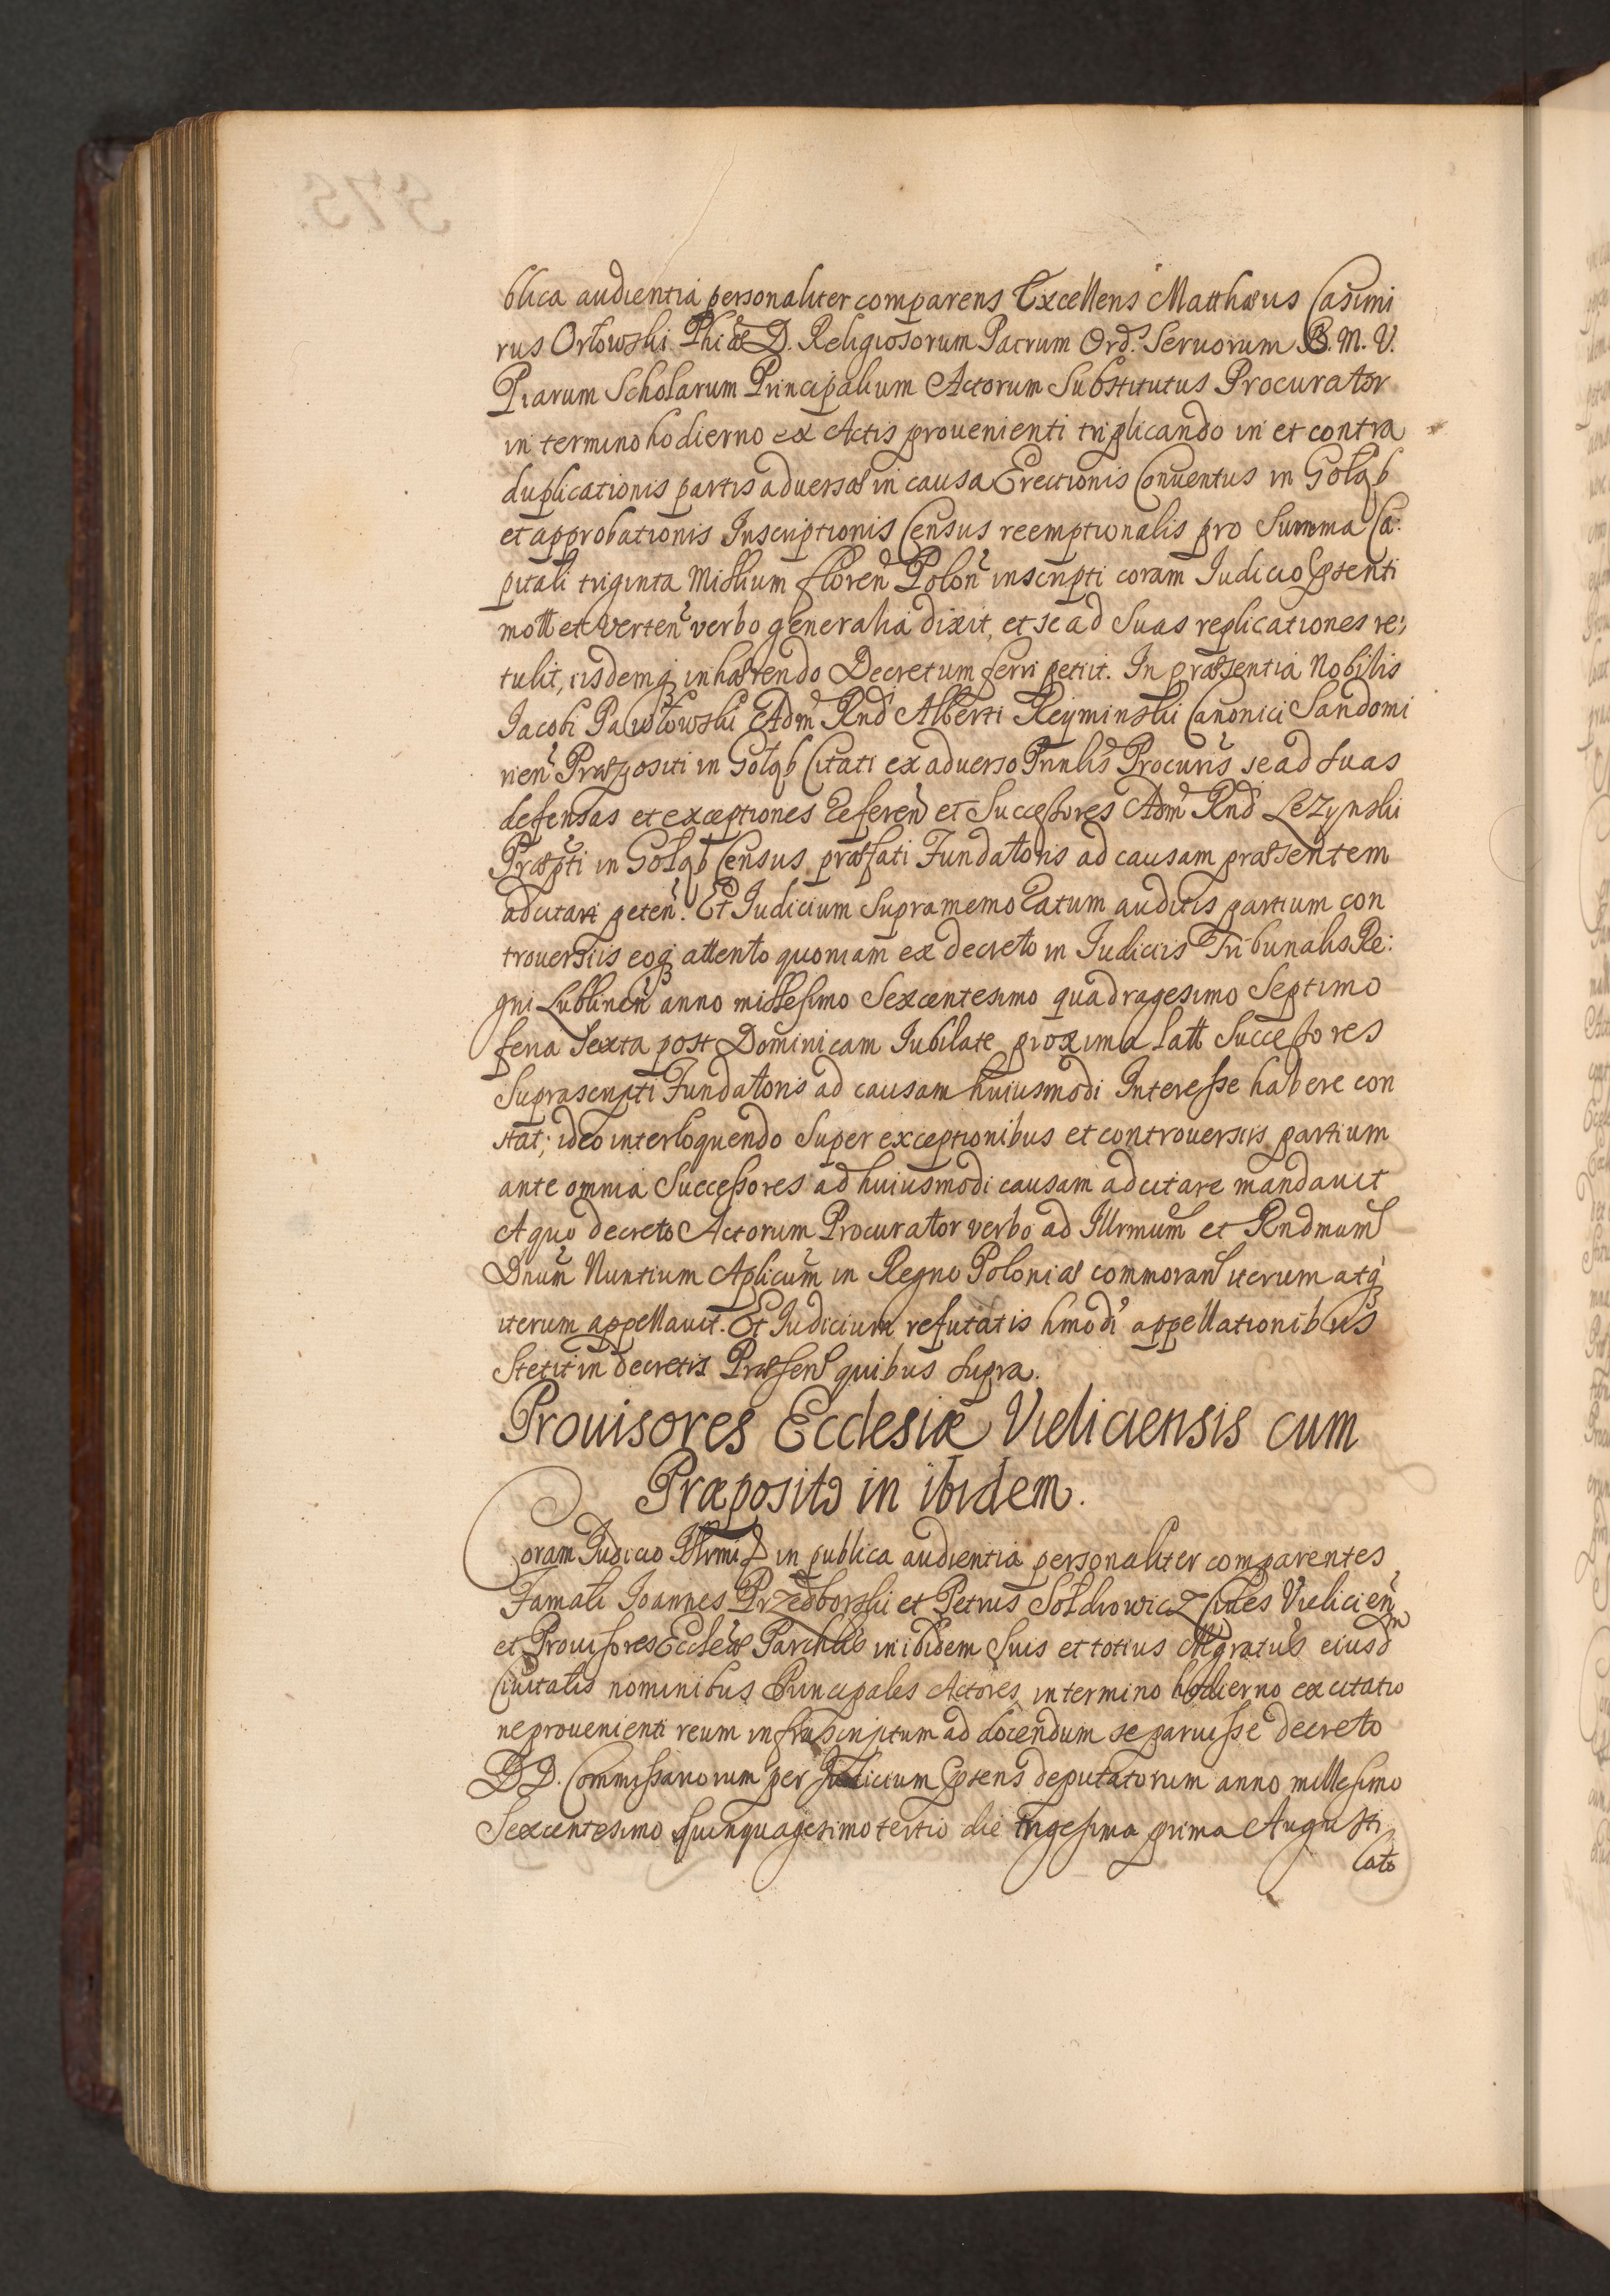 blica audientia personaliter comparens Excellens Matthæus Casimi
rus Orłowski Phiæ D. Religiosorum Patrum Ord. Seruorum B. M. V.
Piarum Scholarum Principalium Actorum Substitutus Procurator
in termino hodierno ex Actis prouenienti triplicando in et contra
duplicationis partis aduersæ in causa Erectionis Conuentus in Gołąb
et approbationis Inscriptionis Census reemptionalis pro Summa Ca:
pitali triginta Millium floreñ Poloñ inscripti coram Iudicio Psenti
mott et verteñ verbo generalia dixit, et se ad suas replicationes re:
tulit, iisdemq inhærendo Decretum ferri petiit. In præsentia Nobilis
Iacobi Pawłowski Adm Rnd Alberti Reyminski Canonici Sandomi
rieñ Præpositi in Gołąb Citati ex aduerso Prinlis Procuris se ad suas
defensas et exceptiones Referen et Successores Adm Rnd Lezynski
Præpti in Gołąb Census præfati Fundatoris ad causam præsentem
adcitari peteñ. Et Iudicium Supramemoratum auditis partium con
trouersiis eoq attento quoniam ex decreto in Iudiciis Tribunalis Re:
gni Lublineñ anno millesimo Sexcentesimo quadragesimo Septimo
feria Sexta post Dominicam Iubilate proxima latt Successores
Suprascripti Fundatoris ad causam huiusmodi Interesse habere con
stat; ideo interloquendo Super exceptionibus et controuersiis partium
ante omnia Successores ad huiusmodi causam adcitare mandauit
A quo decreto Actorum Procurator verbo ad Illrmum et Rndmum
Dnum Nuntium Aplicum in Regno Poloniæ commoran iterum atq
iterum appellauit. Et Iudicium refutatis hmodi appellationibus
Stetit in decretis Præsen quibus supra.
Prouisores Ecclesiæ Vieliciensis cum
Præposito in ibidem.
Coram Iudicio Illrmi D in publica audientia personaliter comparentes
Famati Ioannes Przedborski et Petrus Sołdrowicz Ciues Vielicieñ
et Prouisores Ecclæ Parchlis in ibidem Suis et totius Mgratus eiusdm
Ciuitatis nominibus Principales Actores in termino hodierno ex citatio
ne prouenienti reum infrascriptum ad docendum se paruisse decreto
DD. Commissariorum per Iudicium Psens deputatorum anno millesimo
Sexcentesimo quinquagesimo tertio die trigesima prima Augusti
lato